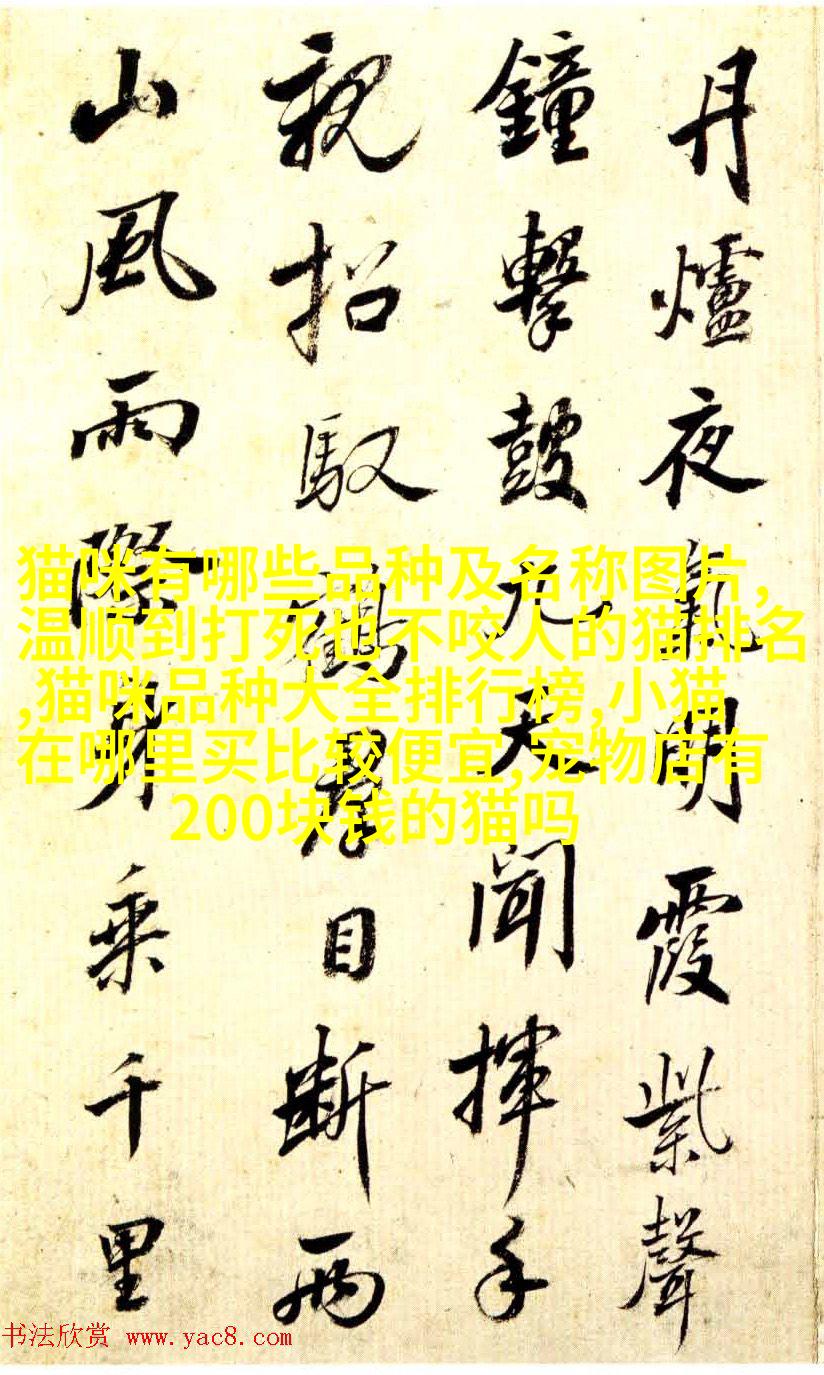 丹爐夜氣明霞紫聲
鐘擊鼓九天聞揮手
親招馭鶴目斷兩
山風雨際身乘千里
猫咪有哪些品种及名称图片,
温顺到打死也不咬人的猫排名
,猫咪品种大全排行榜,小猫
在哪里买比较便宜,宠物店有
200块钱的猫吗
书法欣赏 www.yac8.com